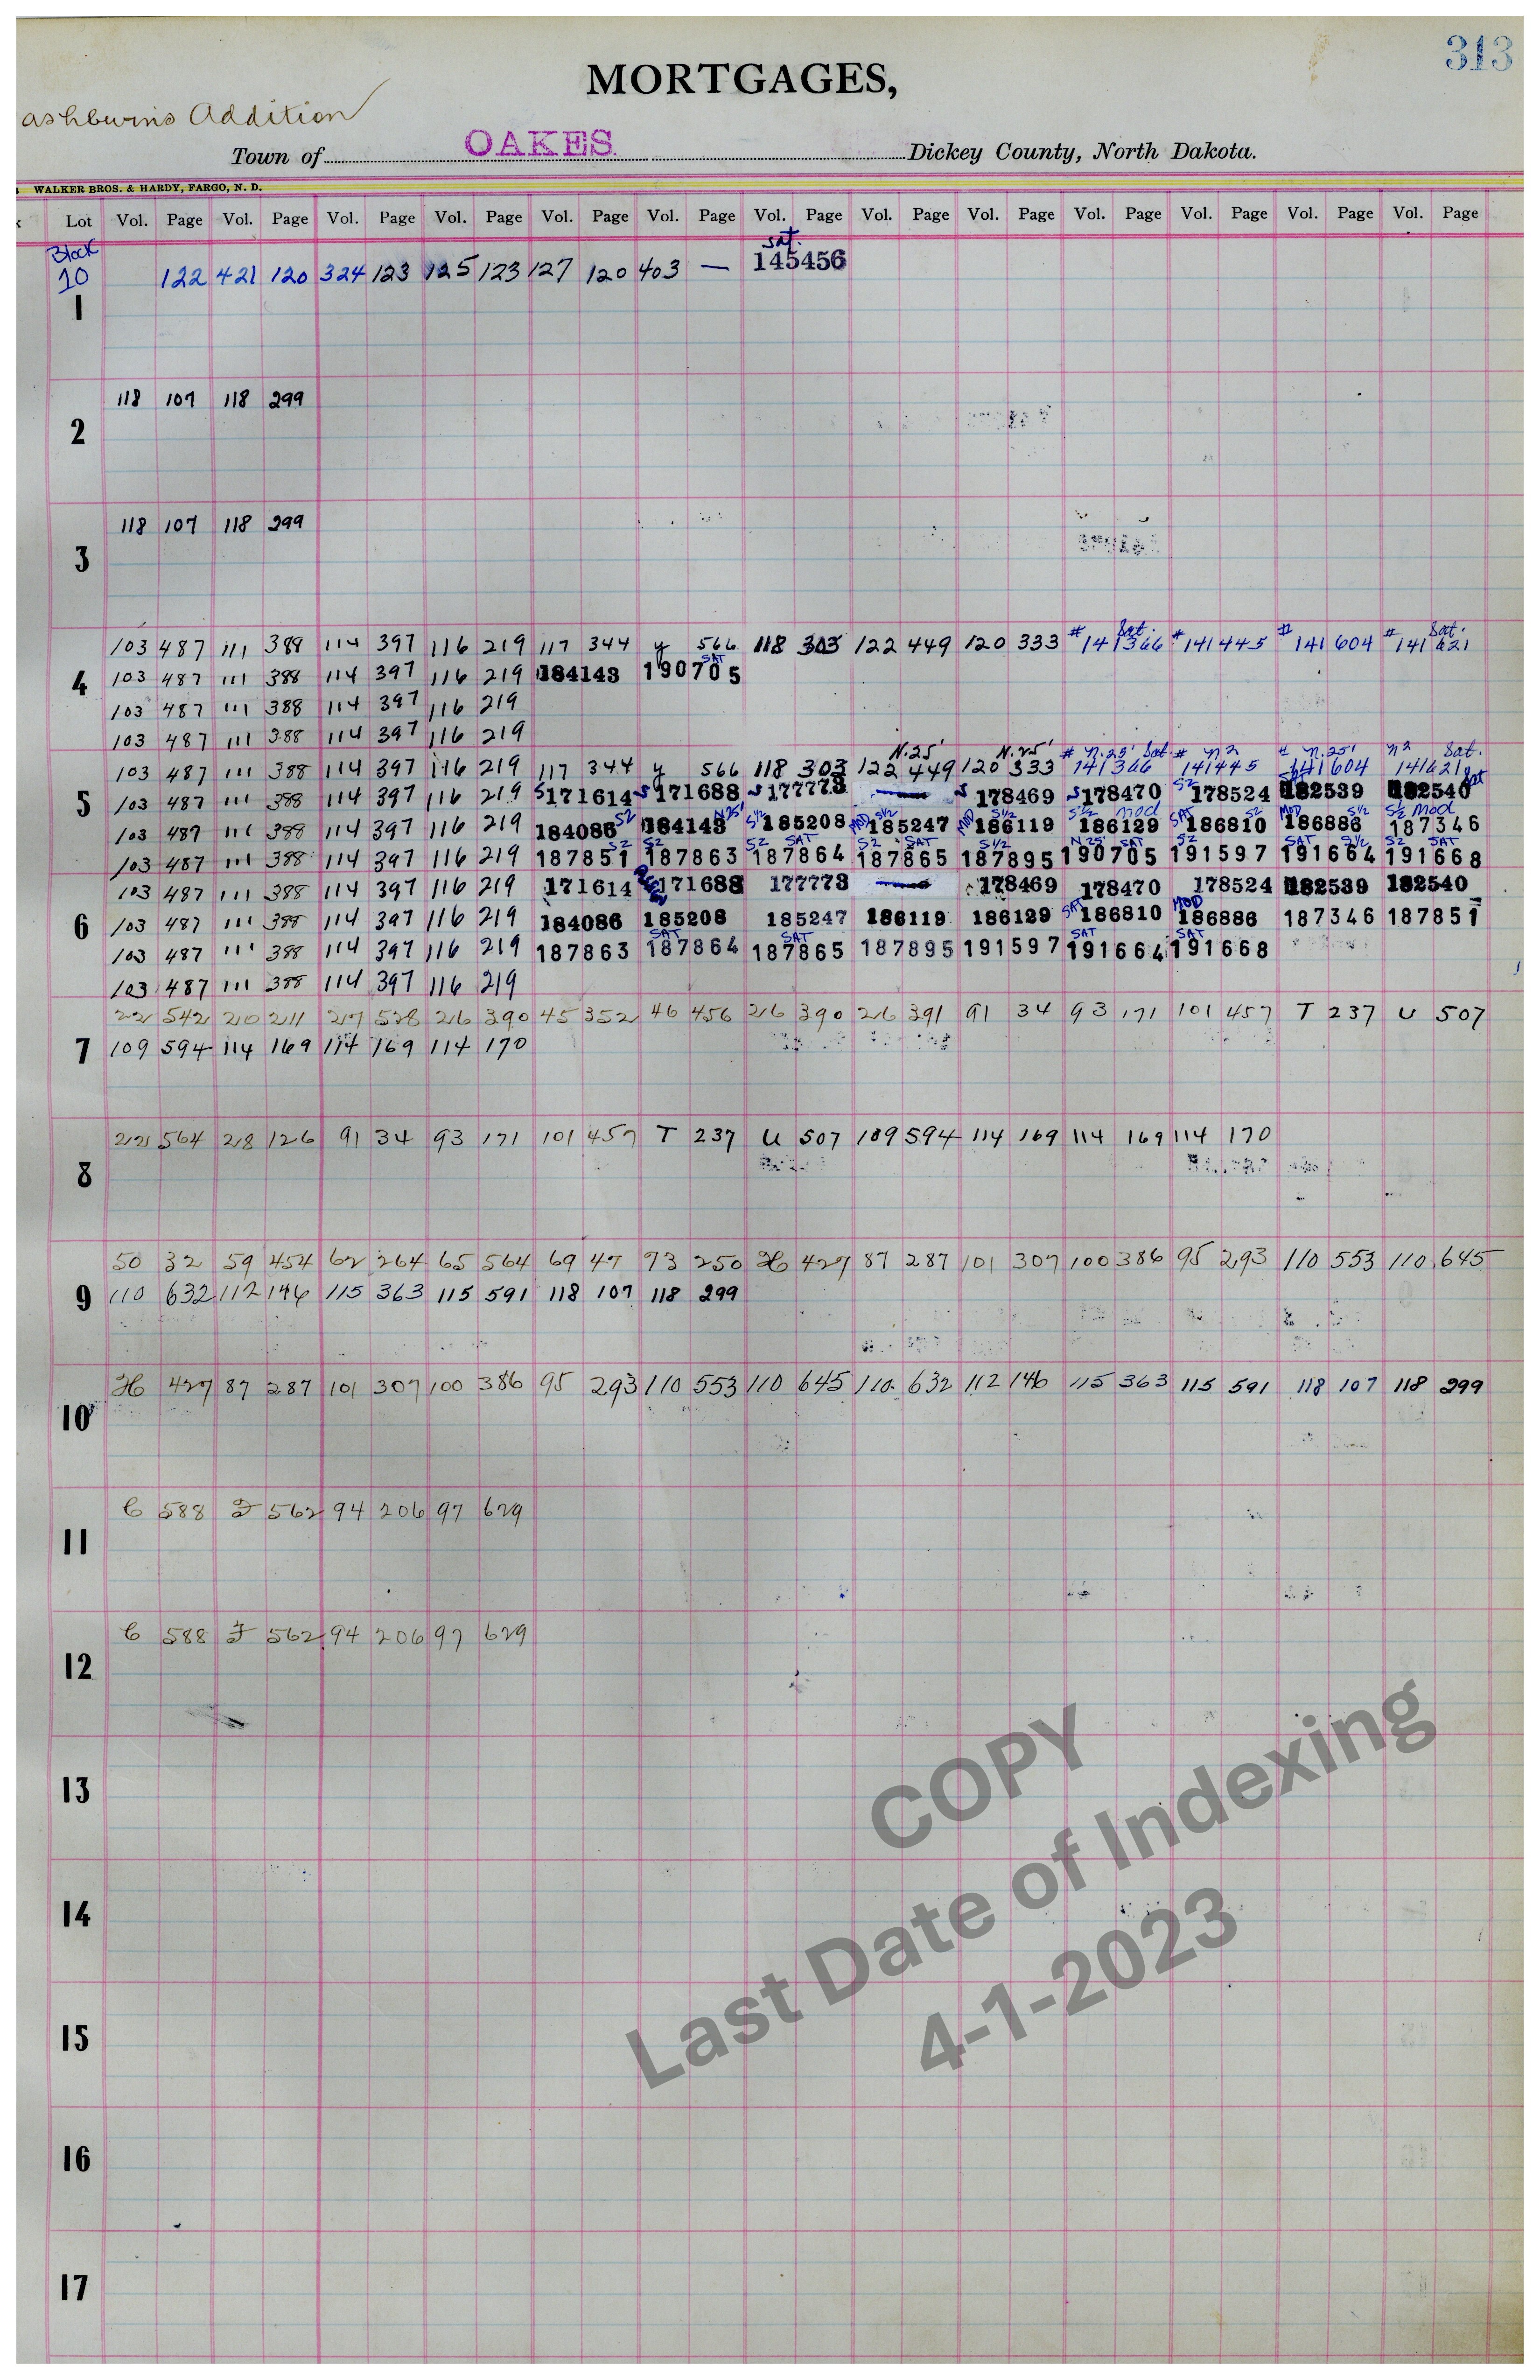 313
MORTGAGES,
ashburn's Addition
Town of OAKES Dickey County, North Dakota.
WALKER BROS. & HARDY, FARGO, N. D.
Lot Vol. Page Vol. Page Vol. Page Vol. Page Vol. Page Vol. Page Vol. Page Vol. Page Vol. Page Vol. Page Vol. Page Vol. Page Vol. Page
Block sat.
10 122 421 120 324 123 125 123 127 120 403 — 145456
1
118 107 118 299
2
118 107 118 299
3
Sat. Sat.
103 487 111 388 114 397 116 219 117 344 y 566 118 303 122 449 120 333 # 141366 # 141445 # 141604 # 141621
4 103 487 111 388 114 397 116 219 184143 190705 SAT
103 487 111 388 114 397 116 219
103 487 111 388 114 397 116 219
N.25' N.25' # N.25' Sat. # N2 # N.25' N2 Sat.
103 487 111 388 114 397 116 219 117 344 y 566 118 303 122 449 120 333 141366 141445 141604 141621
5 103 487 111 388 114 397 116 219 S 171614 S 171688 S 177773 — S 178469 S 178470 S2 178524 182539 182540
S2 N25' S1/2 MOD S1/2 MOD S1/2 S1/2 mod SAT S2 MOD S1/2 S1/2 mod
103 487 111 388 114 397 116 219 184086 184143 185208 185247 186119 186129 186810 186886 187346
S2 S2 S2 SAT S2 SAT S1/2 N 25' SAT S2 SAT S1/2 S2 SAT
103 487 111 388 114 397 116 219 187851 187863 187864 187865 187895 190705 191597 191664 191668
103 487 111 388 114 397 116 219 171614 171688 177773 — 178469 178470 178524 182539 182540
6 103 487 111 388 114 397 116 219 184086 185208 185247 186119 186129 SAT 186810 MOD 186886 187346 187851
SAT SAT SAT SAT
103 487 111 388 114 397 116 219 187863 187864 187865 187895 191597 191664 191668
103 487 111 388 114 397 116 219
221 542 210 211 217 528 216 390 45 352 46 456 216 390 216 391 91 34 93 171 101 457 T 237 U 507
7 109 594 114 169 114 169 114 170
221 564 218 126 91 34 93 171 101 457 T 237 U 507 109 594 114 169 114 169 114 170
8
50 32 59 454 62 264 65 564 69 47 73 250 H 427 87 287 101 307 100 386 95 293 110 553 110 645
9 110 632 112 146 115 363 115 591 118 107 118 299
H 427 87 287 101 307 100 386 95 293 110 553 110 645 110 632 112 146 115 363 115 591 118 107 118 299
10
C 588 F 562 94 206 97 629
11
C 588 F 562 94 206 97 629
12
13
14
15
16
17
COPY
Last Date of Indexing
4-1-2023